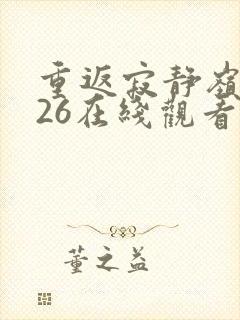 重返寂静嶺
26在线觀看
董之益